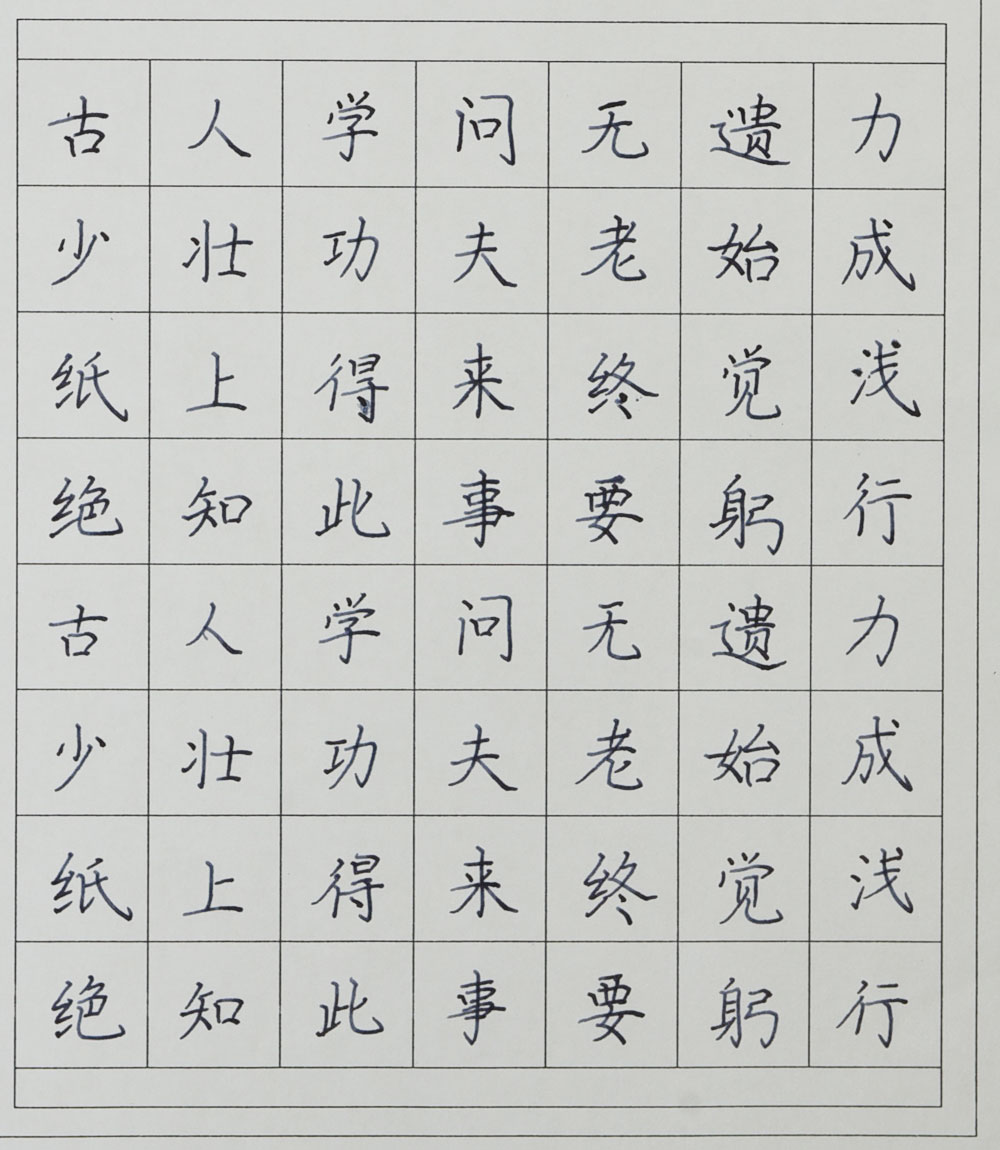 古人学问无遗力
少壮功夫老始成
纸上得来终觉浅
绝知此事要躬行
古人学问无遗力
少壮功夫老始成
纸上得来终觉浅
绝知此事要躬行